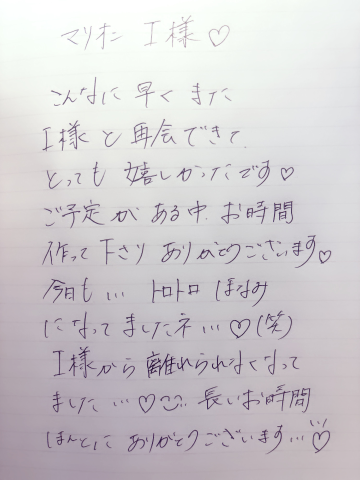 マリオネ I様♡
こんなに 早く また
I様 と 再会できて
とっても 嬉しかったです♡
ご予定が ある中、お時間
作って下さり ありがとうございます♡
今日も... トロトロ ほなみ
になって ましたネ...♡(笑)
I様から 離れられなくなって
ました...♡ 長いお時間
ほんとに ありがとうございます...♡